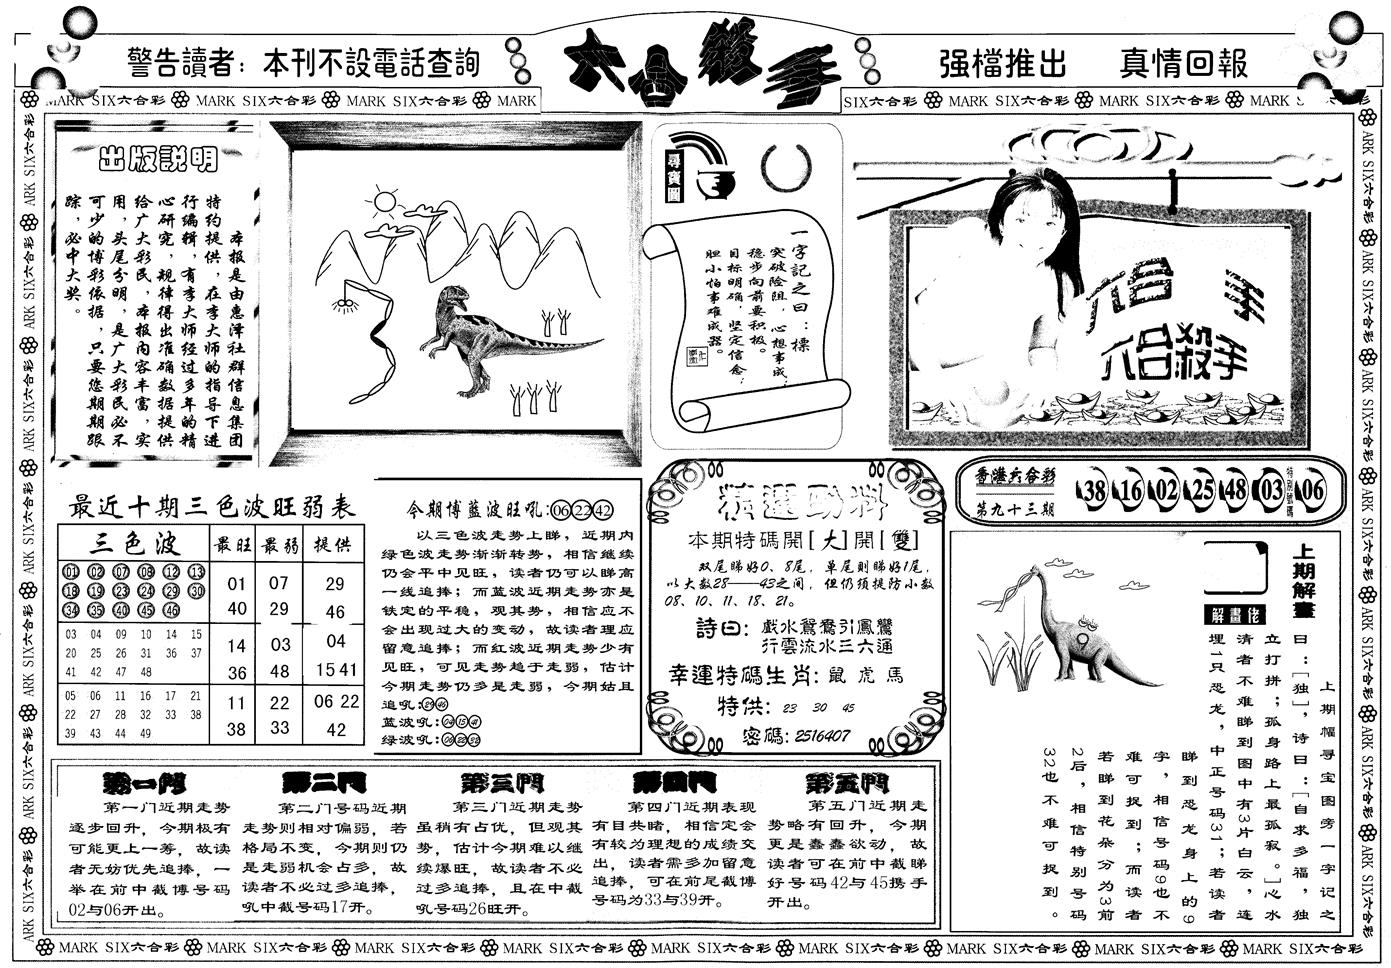 警告讀者：本刊不設電話查詢
六合殺手
强檔推出 真情回報
MARK SIX六合彩 MARK SIX六合彩 MARK SIX六合彩 MARK
SIX六合彩 MARK SIX六合彩 MARK SIX六合彩 MARK
出版説明
本报是由惠泽社群信息集团
特约提供，在李大师的指导下进
行编辑，有李大师经过多年的精
心研究，规律得出准确数据提供
给广大彩民，本报内容丰富，实
用，头尾分明，是广大彩民必不
可少的博彩依据，只要您期期跟
踪，必中大奖。
尋寶圖
一字記之曰：標
突破险阻，心想事成；
稳步向前要积极。
目标明确，坚定信念；
胆小怕事难成器。
六合 手
六合殺手
香港六合彩
第九十三期
38 16 02 25 48 03 特别號碼 06
最近十期三色波旺弱表
三色波 最旺 最弱 提供
01 02 07 08 12 13
18 19 23 24 29 30
34 35 40 45 46
01 07 29
40 29 46
03 04 09 10 14 15
20 25 26 31 36 37
41 42 47 48
14 03 04
36 48 15 41
05 06 11 16 17 21
22 27 28 32 33 38
39 43 44 49
11 22 06 22
38 33 42
今期博蓝波旺吼:06 22 42
以三色波走势上睇，近期内
绿色波走势渐渐转势，相信继续
仍会平中见旺，读者仍可以睇高
一线追捧；而蓝波近期走势亦是
铁定的平稳，观其势，相信应不
会出现过大的变动，故读者理应
留意追捧；而红波近期走势少有
见旺，可见走势趋于走弱，估计
今期走势仍多是走弱，今期姑且
追吼:29 46
蓝波吼:04 15 41
绿波吼:06 22 52
精選勁料
本期特碼開[大]開[雙]
双尾睇好0、8尾，单尾则睇好1尾，
以大数28——43之间，但仍须提防小数
08、10、11、18、21。
詩曰：戲水鴛鴦引鳳鸞
行雲流水三六通
幸運特碼生肖：鼠 虎 馬
特供：23 30 45
密碼：2516407
上期解畫
解畫佬
上期幅寻宝图旁一字记之
曰：［独］，诗曰：［自求多福，独
立打拼；孤身路上最孤寂。］心水
清者不难睇到图中有3片白云，连
埋1只恐龙，中正号码31；若读者
睇到恐龙身上的9
字，相信号码9也不
难可捉到；而读者
若睇到花朵分为3前
2后，相信特别号码
32也不难可捉到。
第一門
第一门近期走势
逐步回升，今期极有
可能更上一筹，故读
者无妨优先追捧，一
举在前中截博号码
02与06开出。
第二門
第二门号码近期
走势则相对偏弱，若
格局不变，今期则仍
是走弱机会占多，故
读者不必过多追捧，
吼中截号码17开。
第三門
第三门近期走势
虽稍有占优，但观其
势，估计今期难以继
续爆旺，故读者不必
过多追捧，且在中截
吼号码26旺开。
第四門
第四门近期表现
有目共睹，相信定会
有较为理想的成绩交
出，读者需多加留意
追捧，可在前尾截博
号码为33与39开。
第五門
第五门近期走
势略有回升，今期
更是蠢蠢欲动，故
读者可在前中截睇
好号码42与45携手
开出。
MARK SIX六合彩 MARK SIX六合彩 MARK SIX六合彩 MARK SIX六合彩 MARK SIX六合彩 MARK SIX六合彩 MARK SIX六合彩 MARK SIX六合彩 MARK SIX六合彩